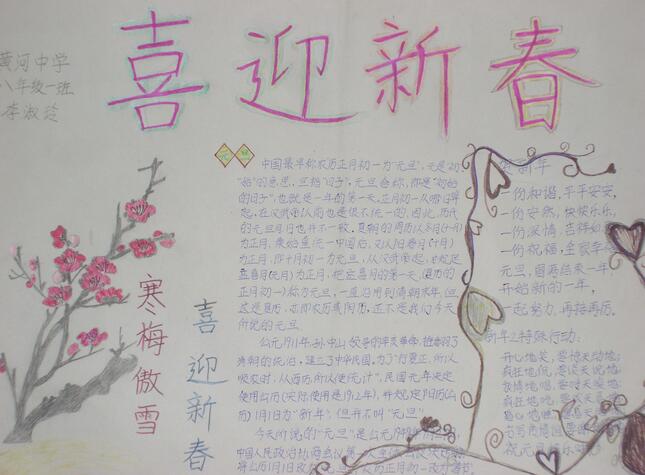 喜迎新春
黄河中学
八年级一班
李淑
元旦
中国最早称农历正月初一为"元旦",元是"初"
"始"的意思,旦指"日子",元旦合称,即是"初始
的日子",也就是一年的第一天,正月初一从哪日算
起,在汉武帝以前也是很不统一的,因此,历代
的元旦月日也并不一致,夏朝的
为正月,秦始皇统一中国后,又以阴春月(十月)
为正月,即十月初一为元旦,从汉武帝起,
孟喜月(元月)为正月,把孟喜月的第一天(夏历的
正月初一)称为元旦,一直沿用到清朝末年,但
这是夏历,亦即农历或阴历,还不是我们今天
所说的元旦
公元1911年,孙中山领导的辛亥革命,推翻了
清朝的统治,建立了中华民国,为了"行夏正,所以
顺农时,从西历,所以便统计",民国元年决定
使用公历(实际使用是1912年),并规定阳历(公
历)1月1日为"新年",但并不叫"元旦"
今天所说的"元旦"是公元1949年
中国人民政治协商会议第一
将公历1月1日 为正月初一改
贺新年
一份和谐,平平安安,
一份安然,快快乐乐,
一份深情,吉祥如
一份祝福,全家幸
元旦,圆满结束一年
开始新的一年,
一起努力,再接再厉,
新年之特殊行动:
开心地笑,要惊天动地;
疯狂地
祝元旦
寒梅傲雪
喜迎新春